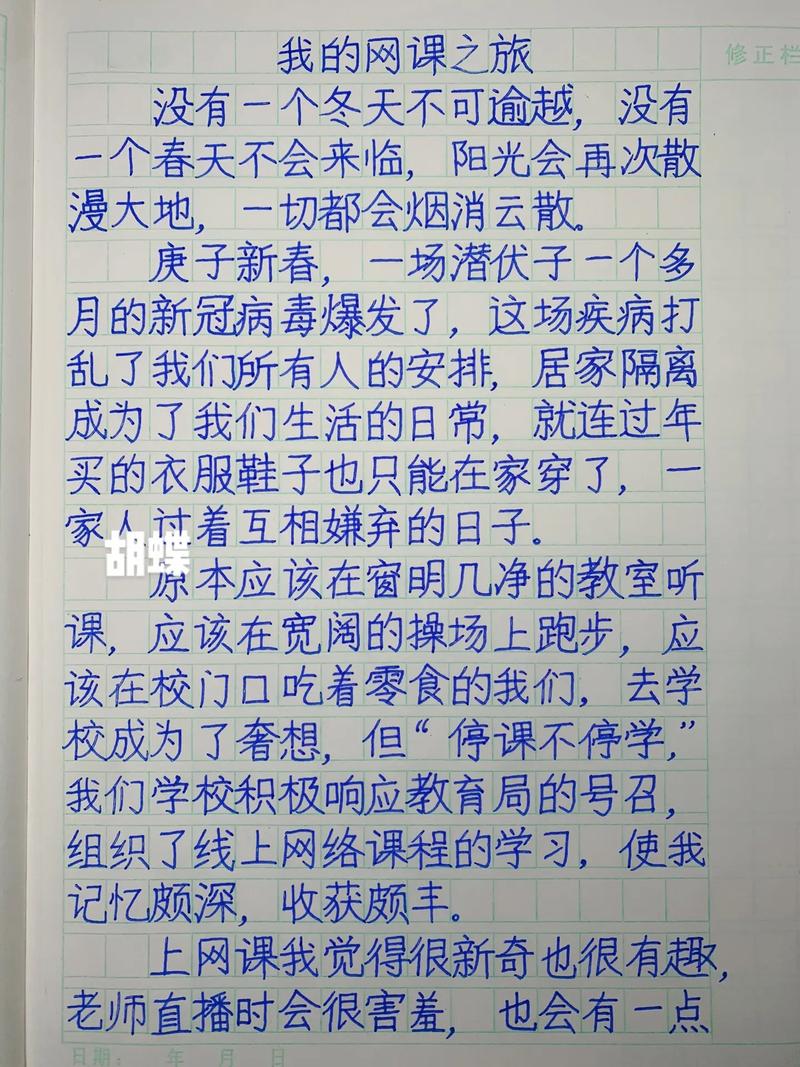 修正栏
我的网课之旅
没有一个冬天不可逾越，没有
一个春天不会来临，阳光会再次散
漫大地，一切都会烟消云散。
庚子新春，一场潜伏于一个多
月的新冠病毒爆发了，这场疾病打
乱了我们所有人的安排，居家隔离
成为了我们生活的日常，就连过年
买的衣服鞋子也只能在家穿了，一
家人过着互相嫌弃的日子。
胡蝶
原本应该在窗明几净的教室听
课，应该在宽阔的操场上跑步，应
该在校门口吃着零食的我们，去学
校成为了奢想，但“停课不停学，”
我们学校积极响应教育局的号召，
组织了线上网络课程的学习，使我
记忆颇深，收获颇丰。
上网课我觉得很新奇也很有趣，
老师直播时会很害羞，也会有一点
日期： 年 月 日